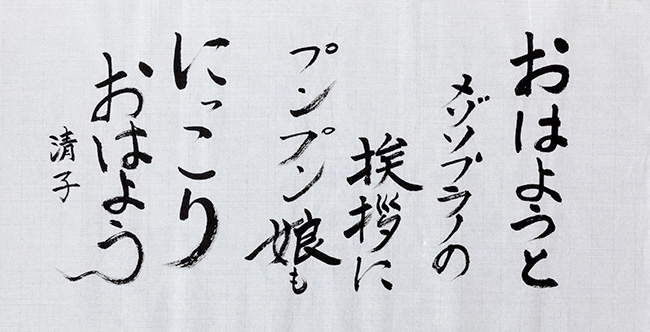 おはようと
メゾソプラノの
挨拶に
プンプン娘も
にっこり
おはよう
清子